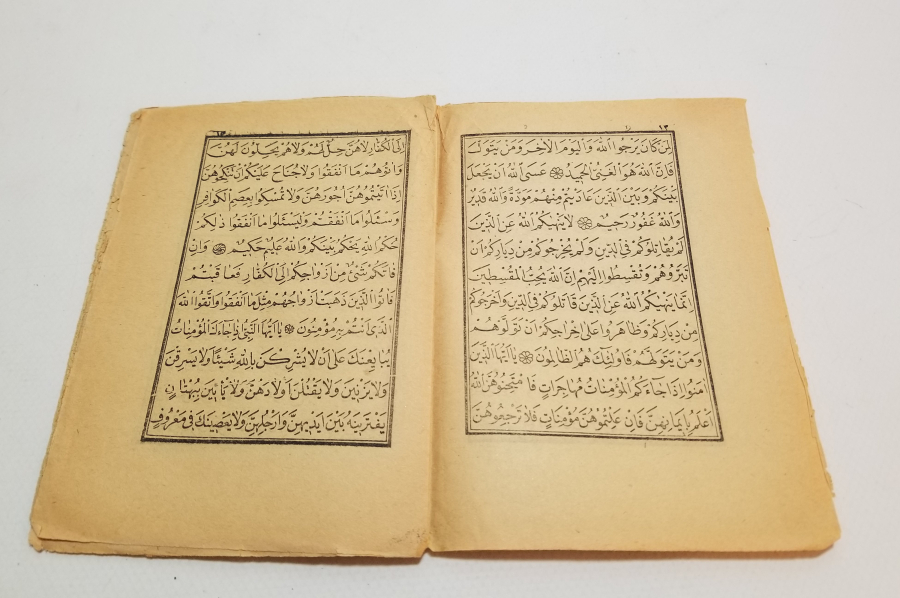 ١٢
لمن كان يرجوا الله واليوم الاخر ومن يتول
فان الله هو الغنى الحميد عسى الله ان يجعل
بينكم وبين الذين عاديتم منهم مودة والله قدير
والله غفور رحيم لا ينهيكم الله عن الذين
لم يقاتلوكم فى الدين ولم يخرجوكم من دياركم ان
تبروهم وتقسطوا اليهم ان الله يحب المقسطين
انما ينهيكم الله عن الذين قاتلوكم فى الدين واخرجوكم
من دياركم وظاهروا على اخراجكم ان تولوهم
ومن يتولهم فاولئك هم الظالمون يا ايها الذين
امنوا اذا جاءكم المؤمنات مهاجرات فامتحنوهن الله
اعلم بايمانهن فان علمتموهن مؤمنات فلا ترجعوهن
الى الكفار لاهن حل لهم ولا هم يحلون لهن
واتوهم ما انفقوا ولا جناح عليكم ان تنكحوهن
اذا اتيتموهن اجورهن ولا تمسكوا بعصم الكوافر
وسئلوا ما انفقتم وليسئلوا ما انفقوا ذلكم
حكم الله يحكم بينكم والله عليم حكيم وان
فاتكم شئ من ازواجكم الى الكفار فعاقبتم
فاتوا الذين ذهبت ازواجهم مثل ما انفقوا واتقوا الله
الذى انتم به مؤمنون يا ايها النبى اذا جاءك المؤمنات
يبايعنك على ان لا يشركن بالله شيئا ولا يسرقن
ولا يزنين ولا يقتلن اولادهن ولا ياتين ببهتان
يفترينه بين ايديهن وارجلهن ولا يعصينك فى معروف